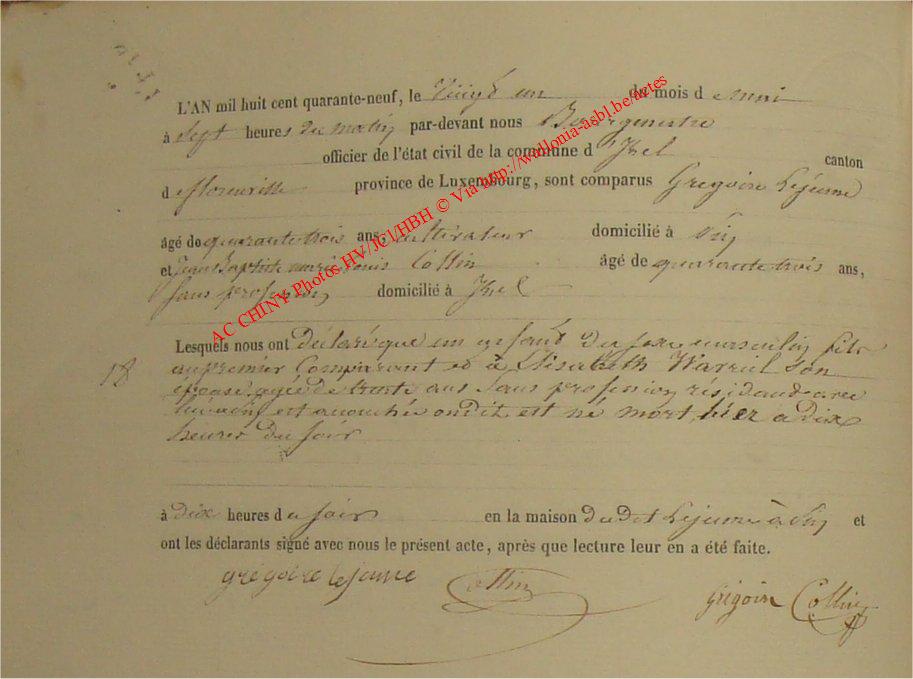 L'AN mil huit cent quarante-neuf, le Vingt un du mois d e mai
à Sept heures du matin par-devant nous Bourgmestre
officier de l'état civil de la commune d' Izel canton
d e florenville province de Luxembourg, sont comparus Grégoire Lejeune
âgé de quarante trois ans, cultivateur domicilié à Pin
et Jean Baptiste marie Louis Collin âgé de quarante trois ans,
sans profession domicilié à Izel
Lesquels nous ont déclaré que un enfant du sexe masculin fils
au premier Comparant et à Elisabeth Warriel son
18
épouse agée de trente ans sans profession, résidant avec
est accouchée est né mort, hier a dix
heures du soir
à dix heures d u soir en la maison du dit Lejeune à Pin et
ont les déclarants signé avec nous le présent acte, après que lecture leur en a été faite.
grégoire lejeune Collin Grégoire Collin
AC CHINY Photos HV/JCl/HBH © Via http://wallonia-asbl.be/actes